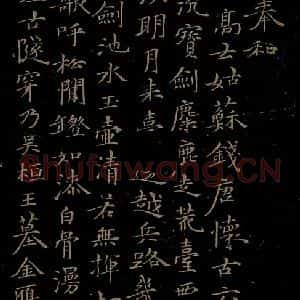 奉和
高士姑蘇錢唐懷古六
沉寶劍麋鹿走荒臺西
明月未 越兵路
劍池水玉壺清若無揮
歌呼松 鐙 漆白骨漫
古隧穿乃吳桓王墓金雁
Shufawang.CN